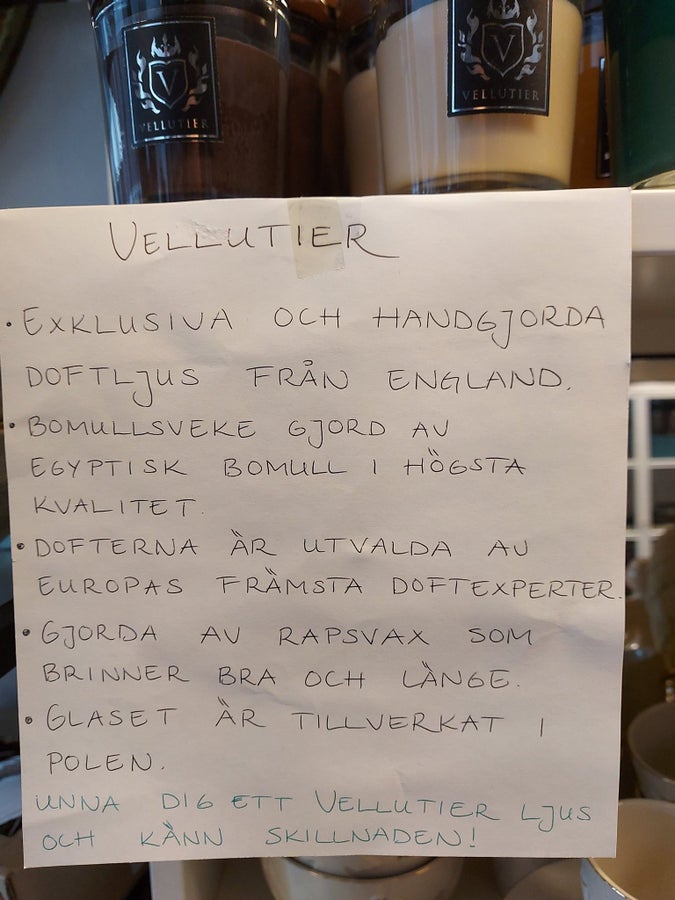 V
VELLUTIER
V
VELLUTIER
VELLUTIER
• EXKLUSIVA OCH HANDGJORDA
DOFTLJUS FRÅN ENGLAND.
• BOMULLSVEKE GJORD AV
EGYPTISK BOMULL I HÖGSTA
KVALITET.
• DOFTERNA ÄR UTVALDA AV
EUROPAS FRÄMSTA DOFTEXPERTER.
• GJORDA AV RAPSVAX SOM
BRINNER BRA OCH LÄNGE.
• GLASET ÄR TILLVERKAT I
POLEN.
UNNA DIG ETT VELLUTIER LJUS
OCH KÄNN SKILLNADEN!